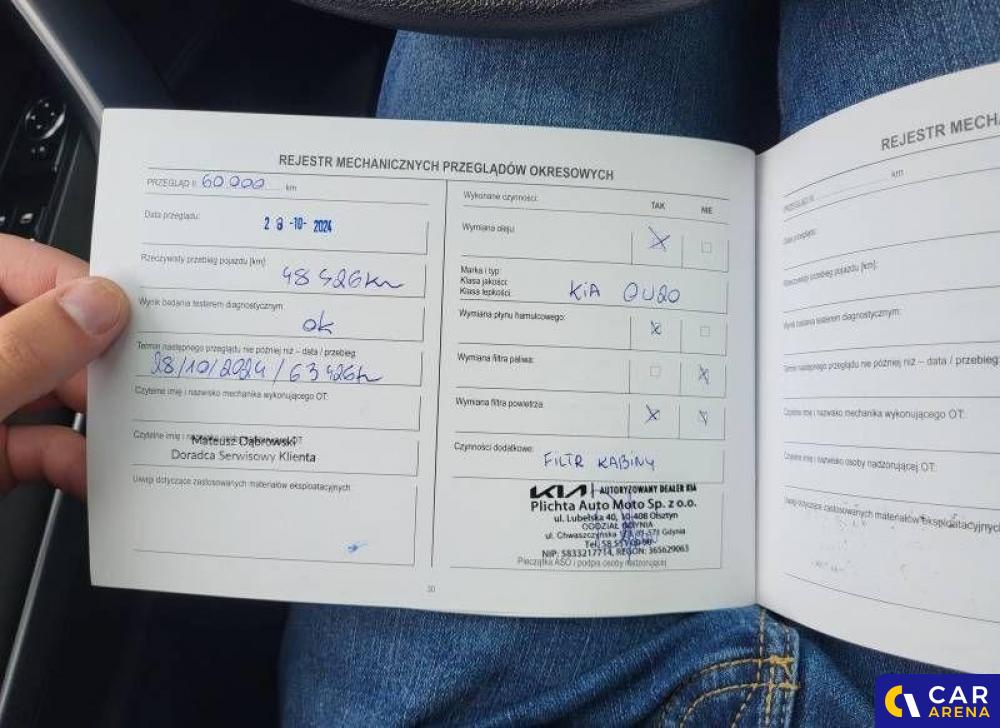 REJESTR MECHANICZNYCH PRZEGLĄDÓW OKRESOWYCH
PRZEGLĄD II: 60 000 km
Data przeglądu:
28 -10- 2024
Rzeczywisty przebieg pojazdu [km]:
48 426km
Wynik badania testerem diagnostycznym:
ok
Termin następnego przeglądu nie później niż – data / przebieg:
28/10/2024 / 63 426km
Czytelne imię i nazwisko mechanika wykonującego OT:
Czytelne imię i nazwisko
Mateusz Dąbrowski
Doradca Serwisowy Klienta
Uwagi dotyczące zastosowanych materiałów eksploatacyjnych:
Wykonane czynności:
TAK NIE
Wymiana oleju:
Marka i typ:
Klasa jakości:
Klasa lepkości:
KIA 0W20
Wymiana płynu hamulcowego:
Wymiana filtra paliwa:
Wymiana filtra powietrza:
Czynności dodatkowe:
FILTR KABINY
KIA AUTORYZOWANY DEALER KIA
Plichta Auto Moto Sp. z o.o.
ul. Lubelska 40, 10-408 Olsztyn
ODDZIAŁ GDYNIA
ul. Chwaszczyńska Gdynia
NIP: 5833217714, REGON: 365629063
Pieczątka ASO i podpis osoby nadzorującej
30
REJESTR MECHA
PRZEGLĄD km
Data przeglądu:
Rzeczywisty przebieg pojazdu [km]:
Wynik badania testerem diagnostycznym:
Termin następnego przeglądu nie później niż – data / przebieg:
Czytelne imię i nazwisko mechanika wykonującego OT:
Czytelne imię i nazwisko osoby nadzorującej OT:
Uwagi dotyczące zastosowanych materiałów eksploatacyjnyc
CAR
ARENA